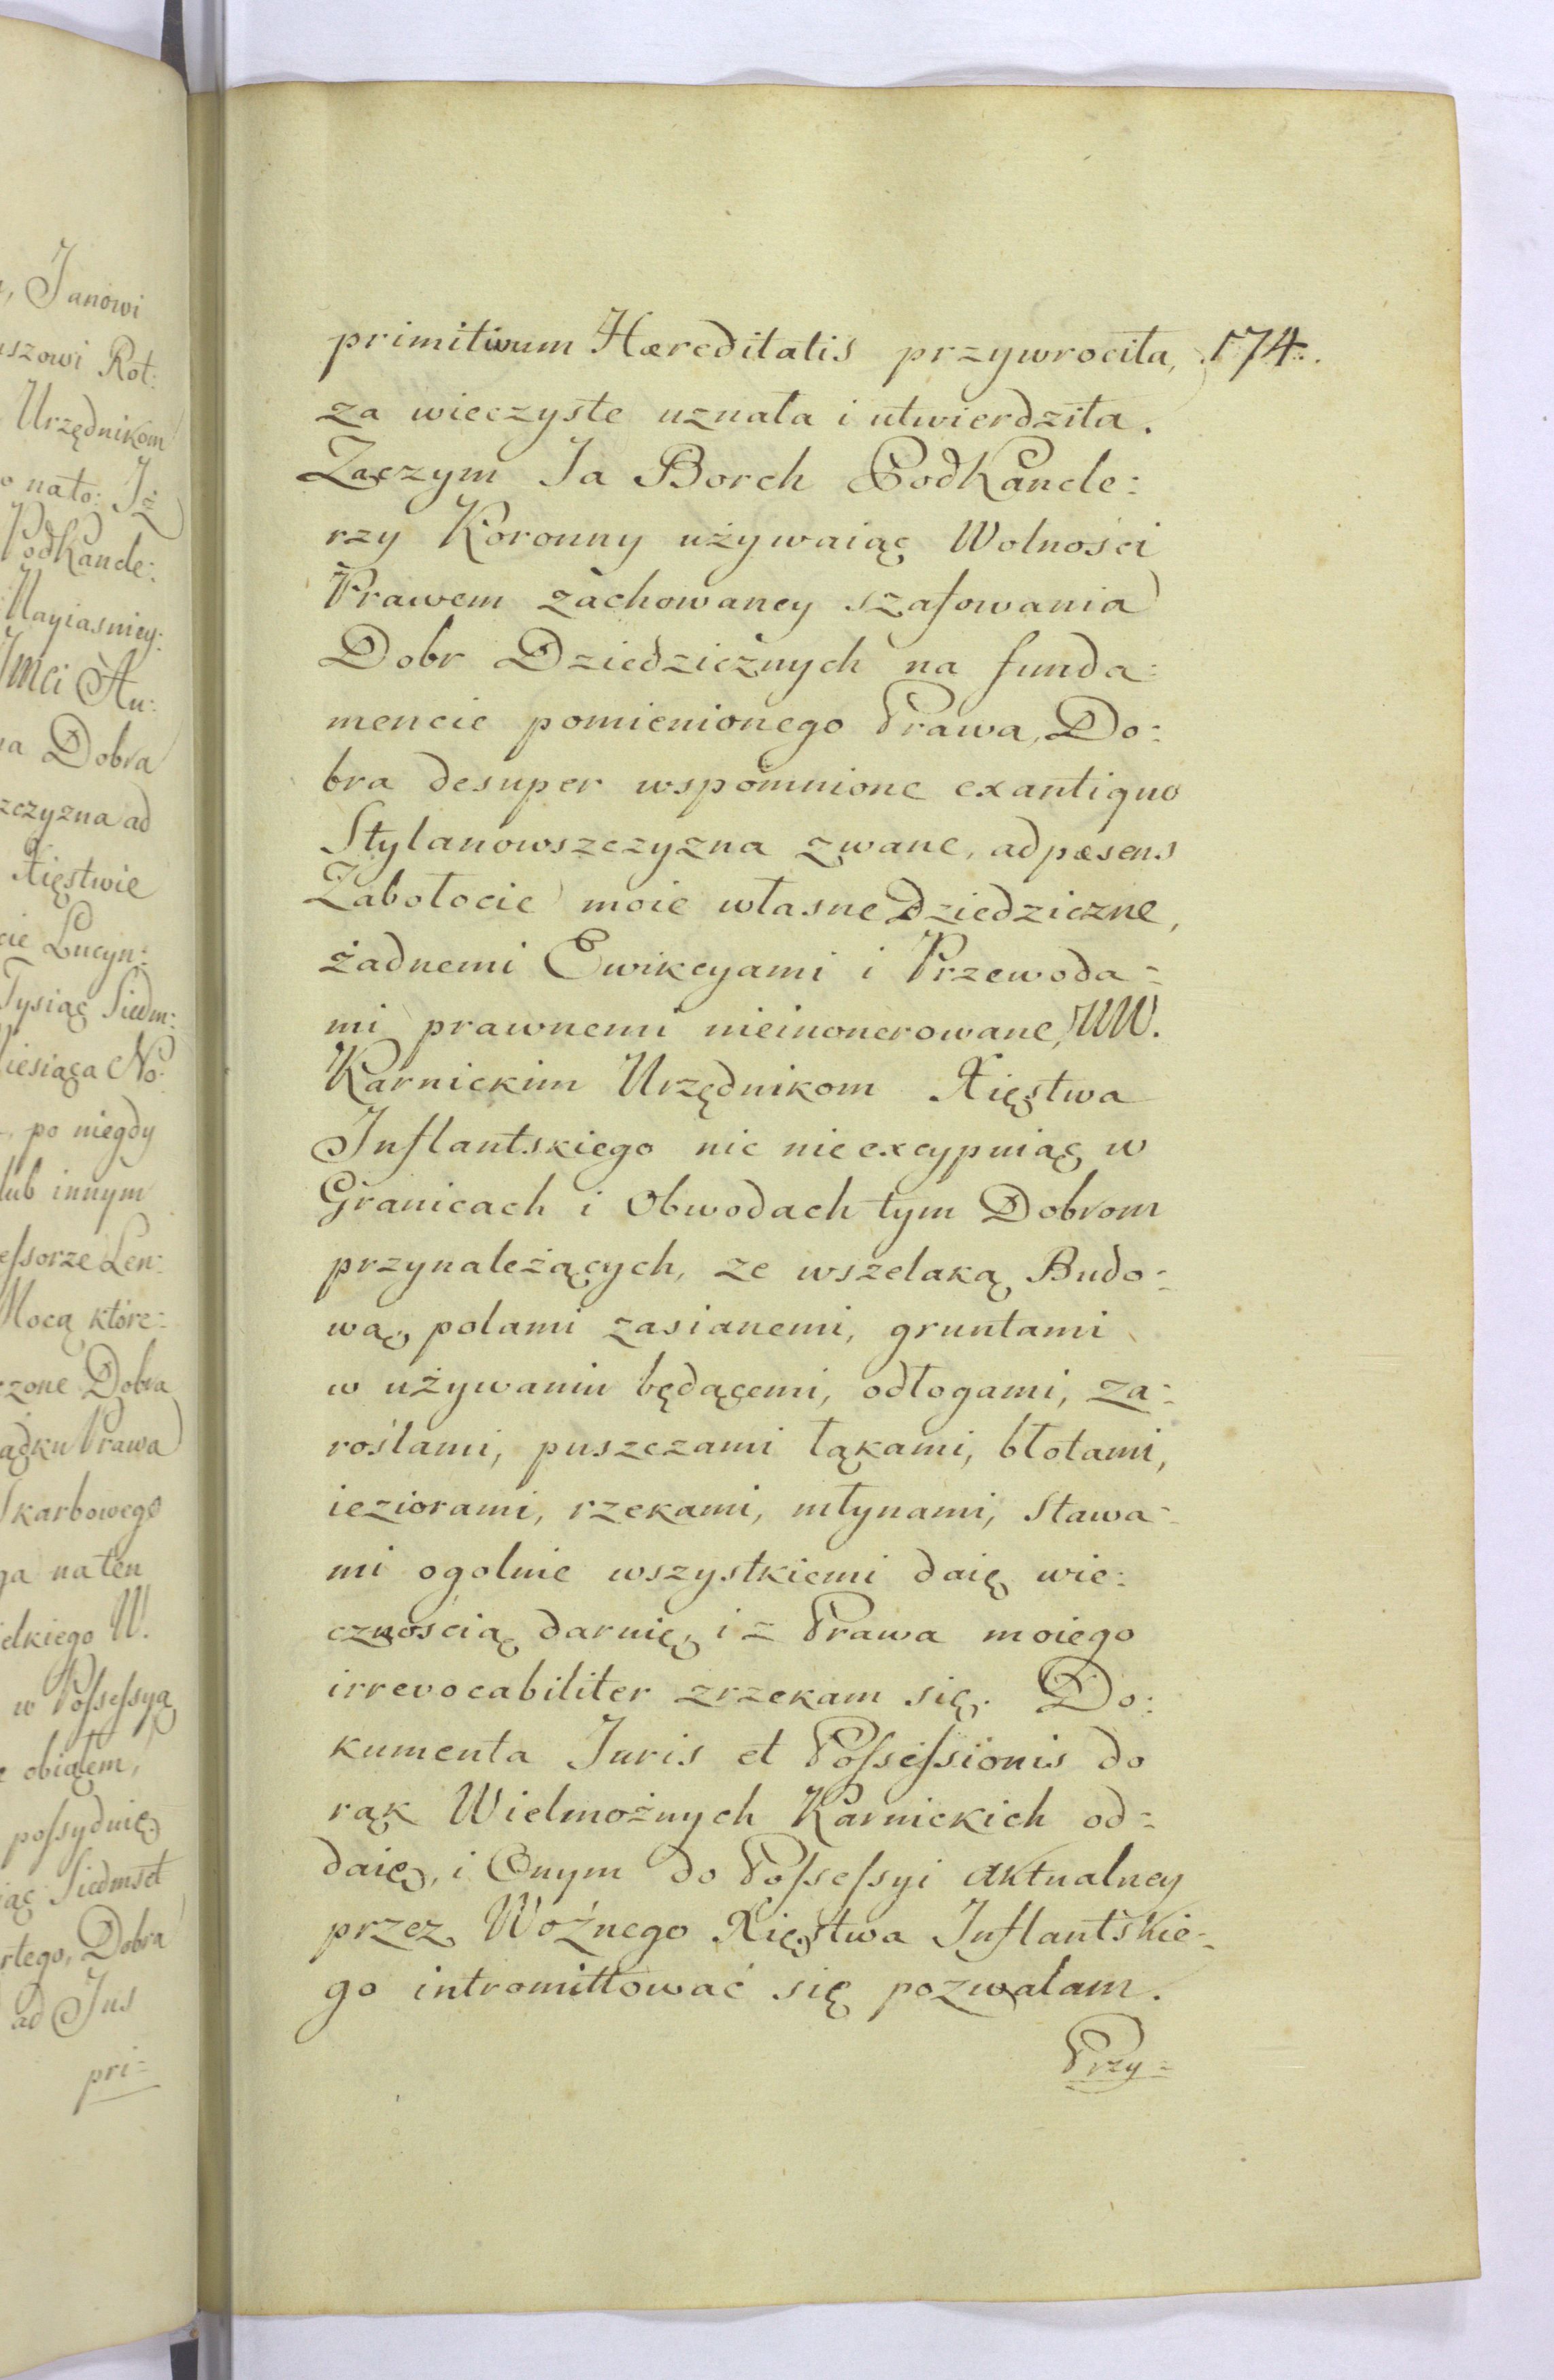 , Janowi
uszowi Rot:
Urzędnikom
o nato: J=
PodKancle:
Nayiasniey:
Jmci Au:
na Dobra
zczyzna ad
Xięstwie
cie Lucyn:
Tysiąc Siedm:
iesiąca No:
po niegdy
lub innym
eſsorze Len:
Mocą które:
czone Dobra
ądku Prawa
Skarbowego
ga na ten
elkiego W.
w Poſseſsyą
e obiąłem,
poſsyduię
iąc Siedmset
rtego, Dobra
ad Jus
pri=
primitivum Hæreditatis przywrociła, 174.
za wieczyste uznała i utwierdziła.
Zaczym Ja Borch PodKancle:
rzy Koronny używaiąc Wolności
Prawem zachowaney szafowania
Dobr Dziedzicznych na funda:
mencie pomienionego Prawa, Do:
bra desuper wspomnione exantiquo
Stylanowszczyzna zwane, adpæsens
Zabołocie moie własne Dziedziczne,
żadnemi Ewikcyami i Przewoda=
mi prawnemi nieinonerowane, WW.
Karnickim Urzędnikom Xięstwa
Inflantskiego nic nieexcypuiąc w
Granicach i Obwodach tym Dobrom
przynależących, ze wszelaką Budo:
wą, polami zasianemi, gruntami
w używaniu będącemi, odłogami, za:
roślami, puszczami łąkami, błotami,
ieziorami, rzekami, młynami, Stawa=
mi ogolnie wszystkiemi daię wie:
cznoscią daruię, i z Prawa moiego
irrevocabiliter zrzekam się. Do:
kumenta Juris et Poſseſsionis do
rąk Wielmożnych Karnickich od=
daię, i Onym do Poſseſsyi aktualney
przez Woźnego Xięstwa Inflantskie=
go intromittować się pozwalam.
Przy=